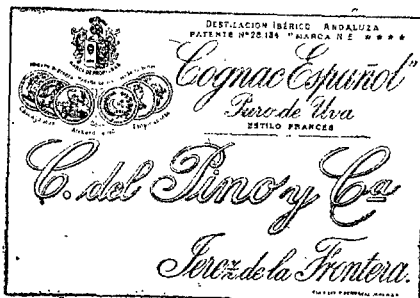 DESTILACION IBÉRICO ANDALUZA
PATENTE Nº 28.134 "MARCA N E ★★★★
"Cognac Español"
Puro de Uva
ESTILO FRANCES
C. del Pino y Cª
Jerez de la Frontera.